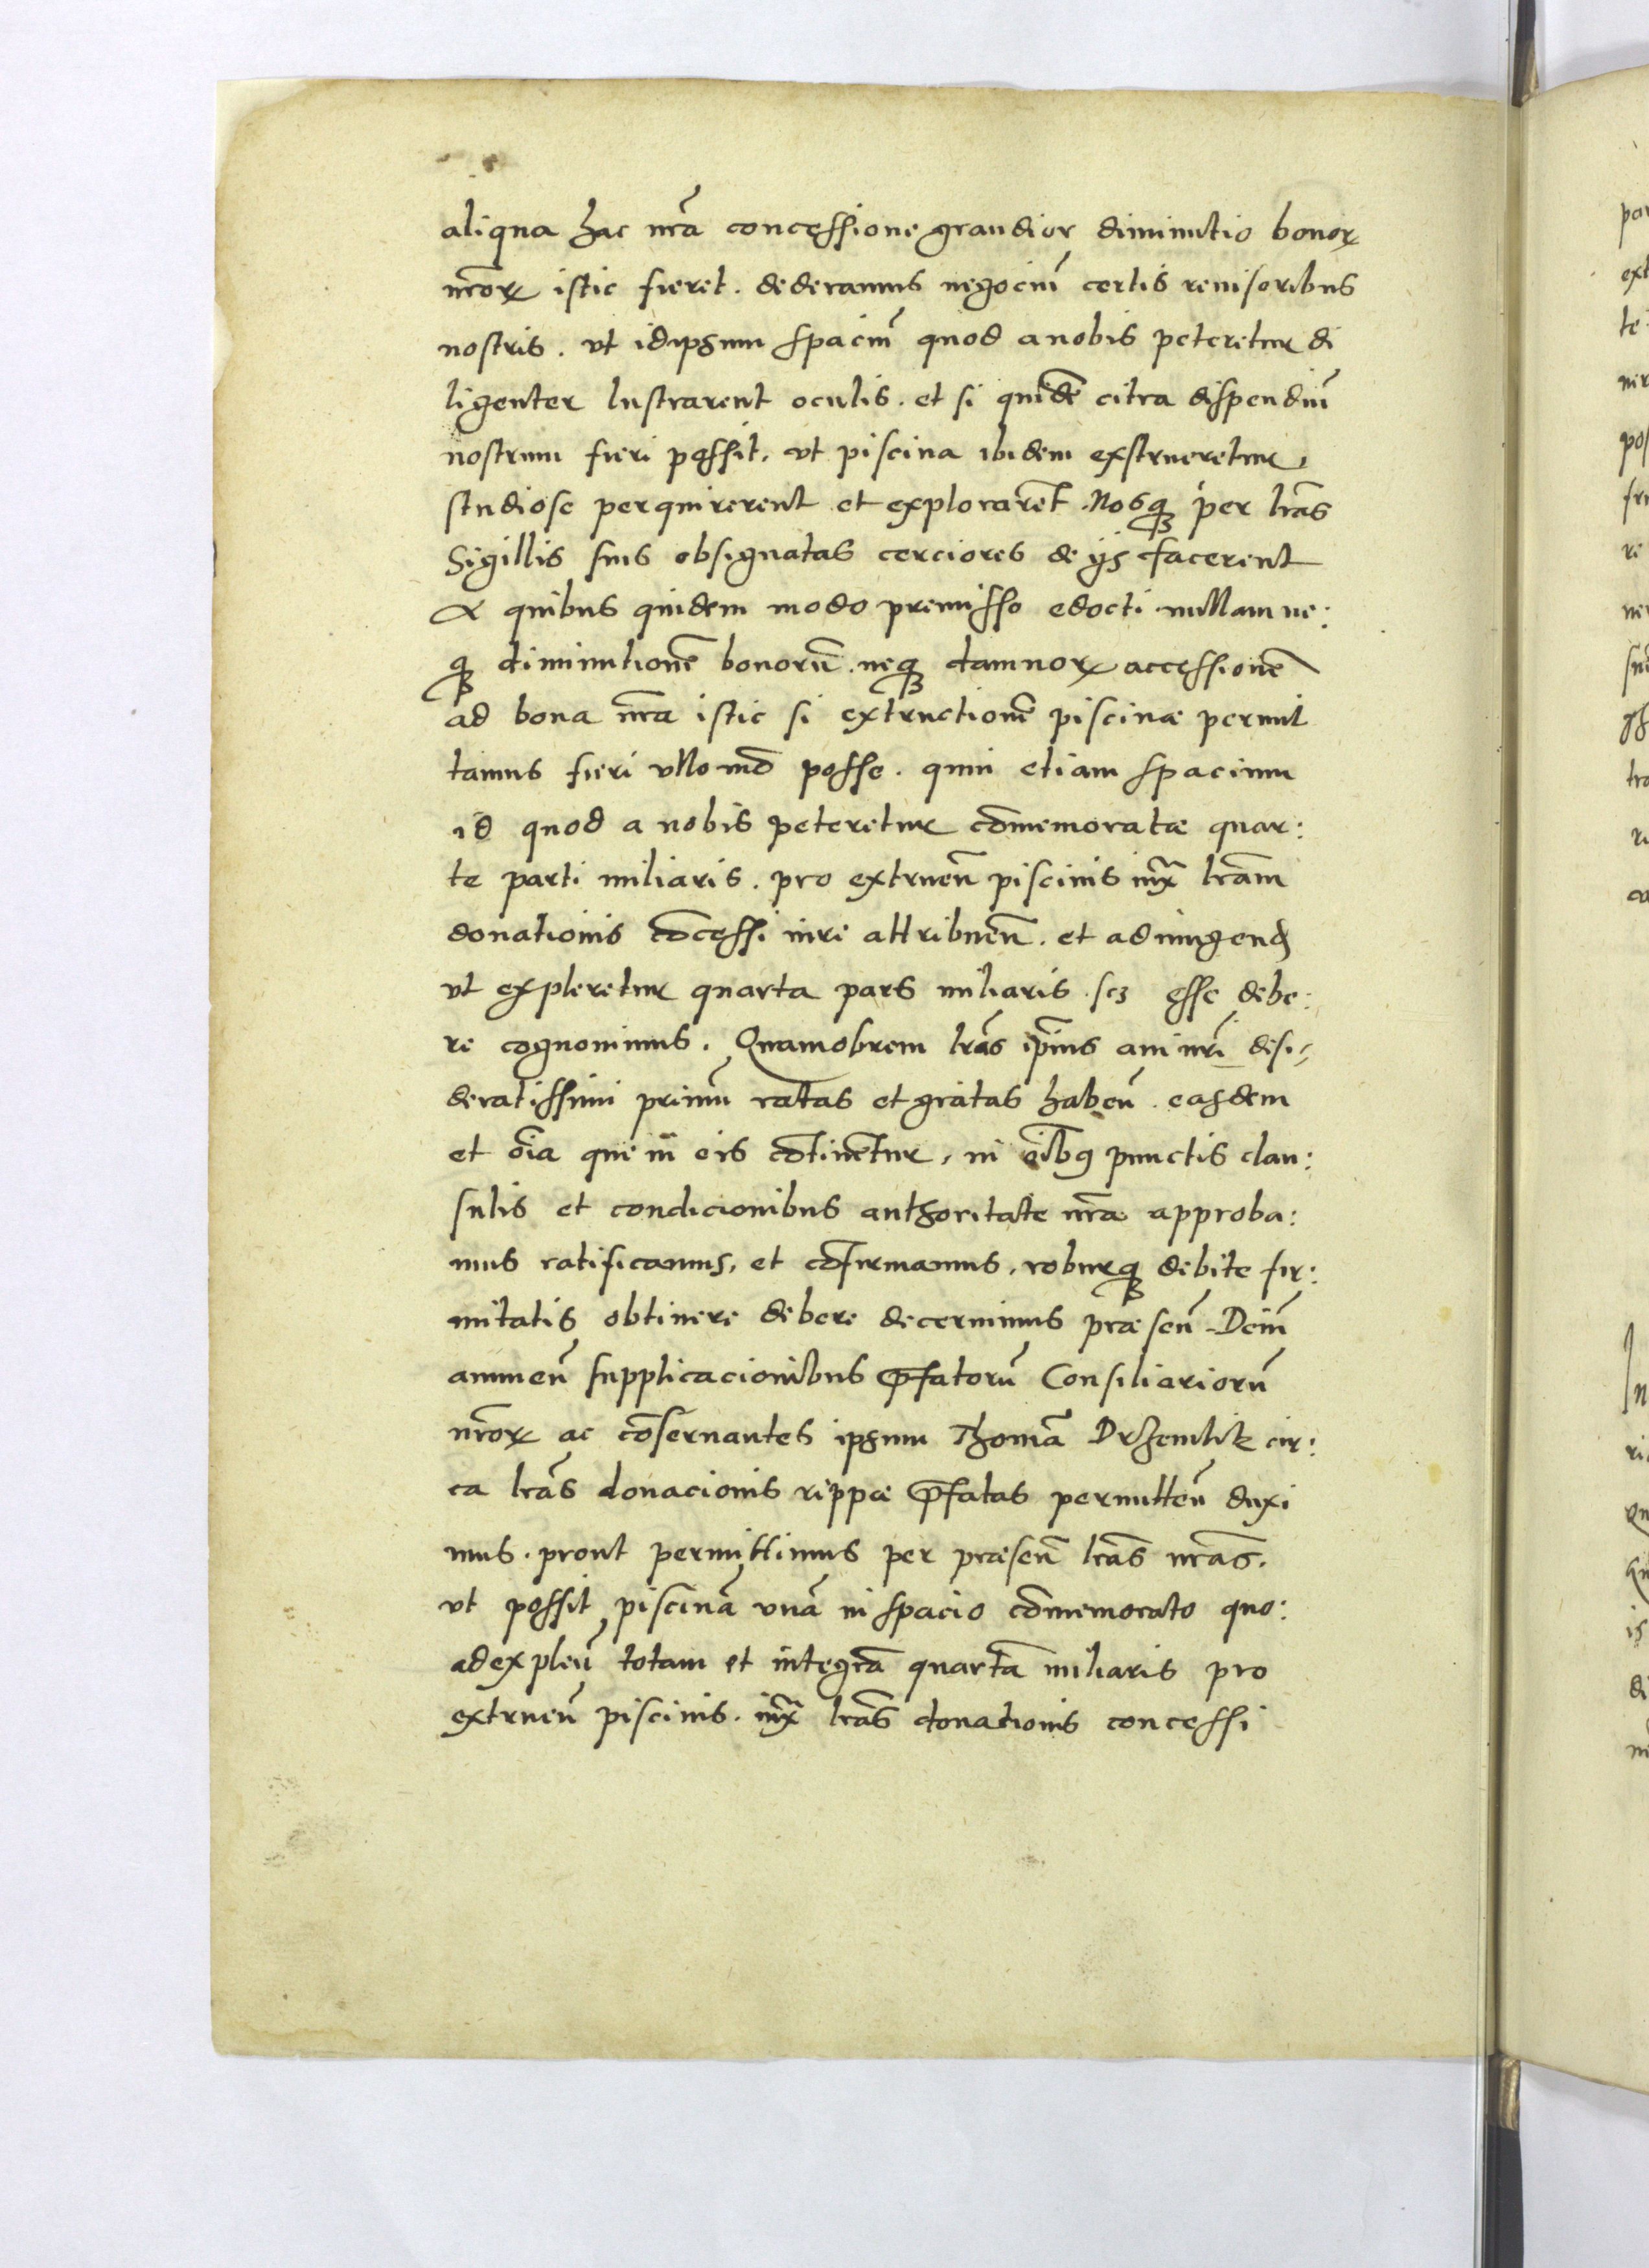 aliqua hac nr̃a concessione grandior diminutio bonoꝝ
nr̃oꝝ istic fieret. dederamus negociũ certis reuisoribus
nostris. vt idipsum spaciũ quod a nobis peteretur di
ligenter lustrarent oculis. et si quidẽ citra dispendiũ
nostrum fieri possit, vt piscina ibidem exstrueretur,
studiose perquirerent et explorarẽt. Nosqꝫ per lr̃as
Sigillis suis obsignatas cerciores de ijs facerent
A quibus quidem modo premisso edocti nullam ne:
qꝫ diminutionẽ bonorũ. neqꝫ damnoꝝ accessionẽ
ad bona nr̃a istic si extructionẽ piscinæ permit
tamus fieri vllo mõ posse. quin etiam spacium
id quod a nobis peteretur cõmemoratæ quar:
te parti miliaris. pro extrueñ piscinis iux̃ lr̃am
donationis cõcessi iure attribueñ. et adiungend̃
vt expleretur quarta pars miliaris. scꝫ esse debe:
re cognouimus. Quamobrem lr̃as ip̃ius aui nr̃i desi:
deratissimi primũ rattas et gratas habeñ. easdem
et õia que in eis cõtinẽtur, in õibꝰ punctis clau:
sulis et condicionibus authoritate nr̃a approba:
mus ratificamus, et cõfirmamus, roburqꝫ debite fir:
mitatis obtinere debere decernimus præseñ. Deiñ
annueñ supplicacionibus p̃fatorũ Consiliariorũ
nr̃oꝝ ac cõseruantes ipsum Thomã Drzewlik cir:
ca lr̃as donacionis rippæ p̃fatas permitteñ duxi
mus. prout permittimus per præseñ lr̃as nr̃as.
vt possit piscinã vnã in spacio cõmemorato quo:
ad expleñ totam et integrã quartã miliaris pro
extrueñ piscinis. iux̃ lr̃as donationis concessi